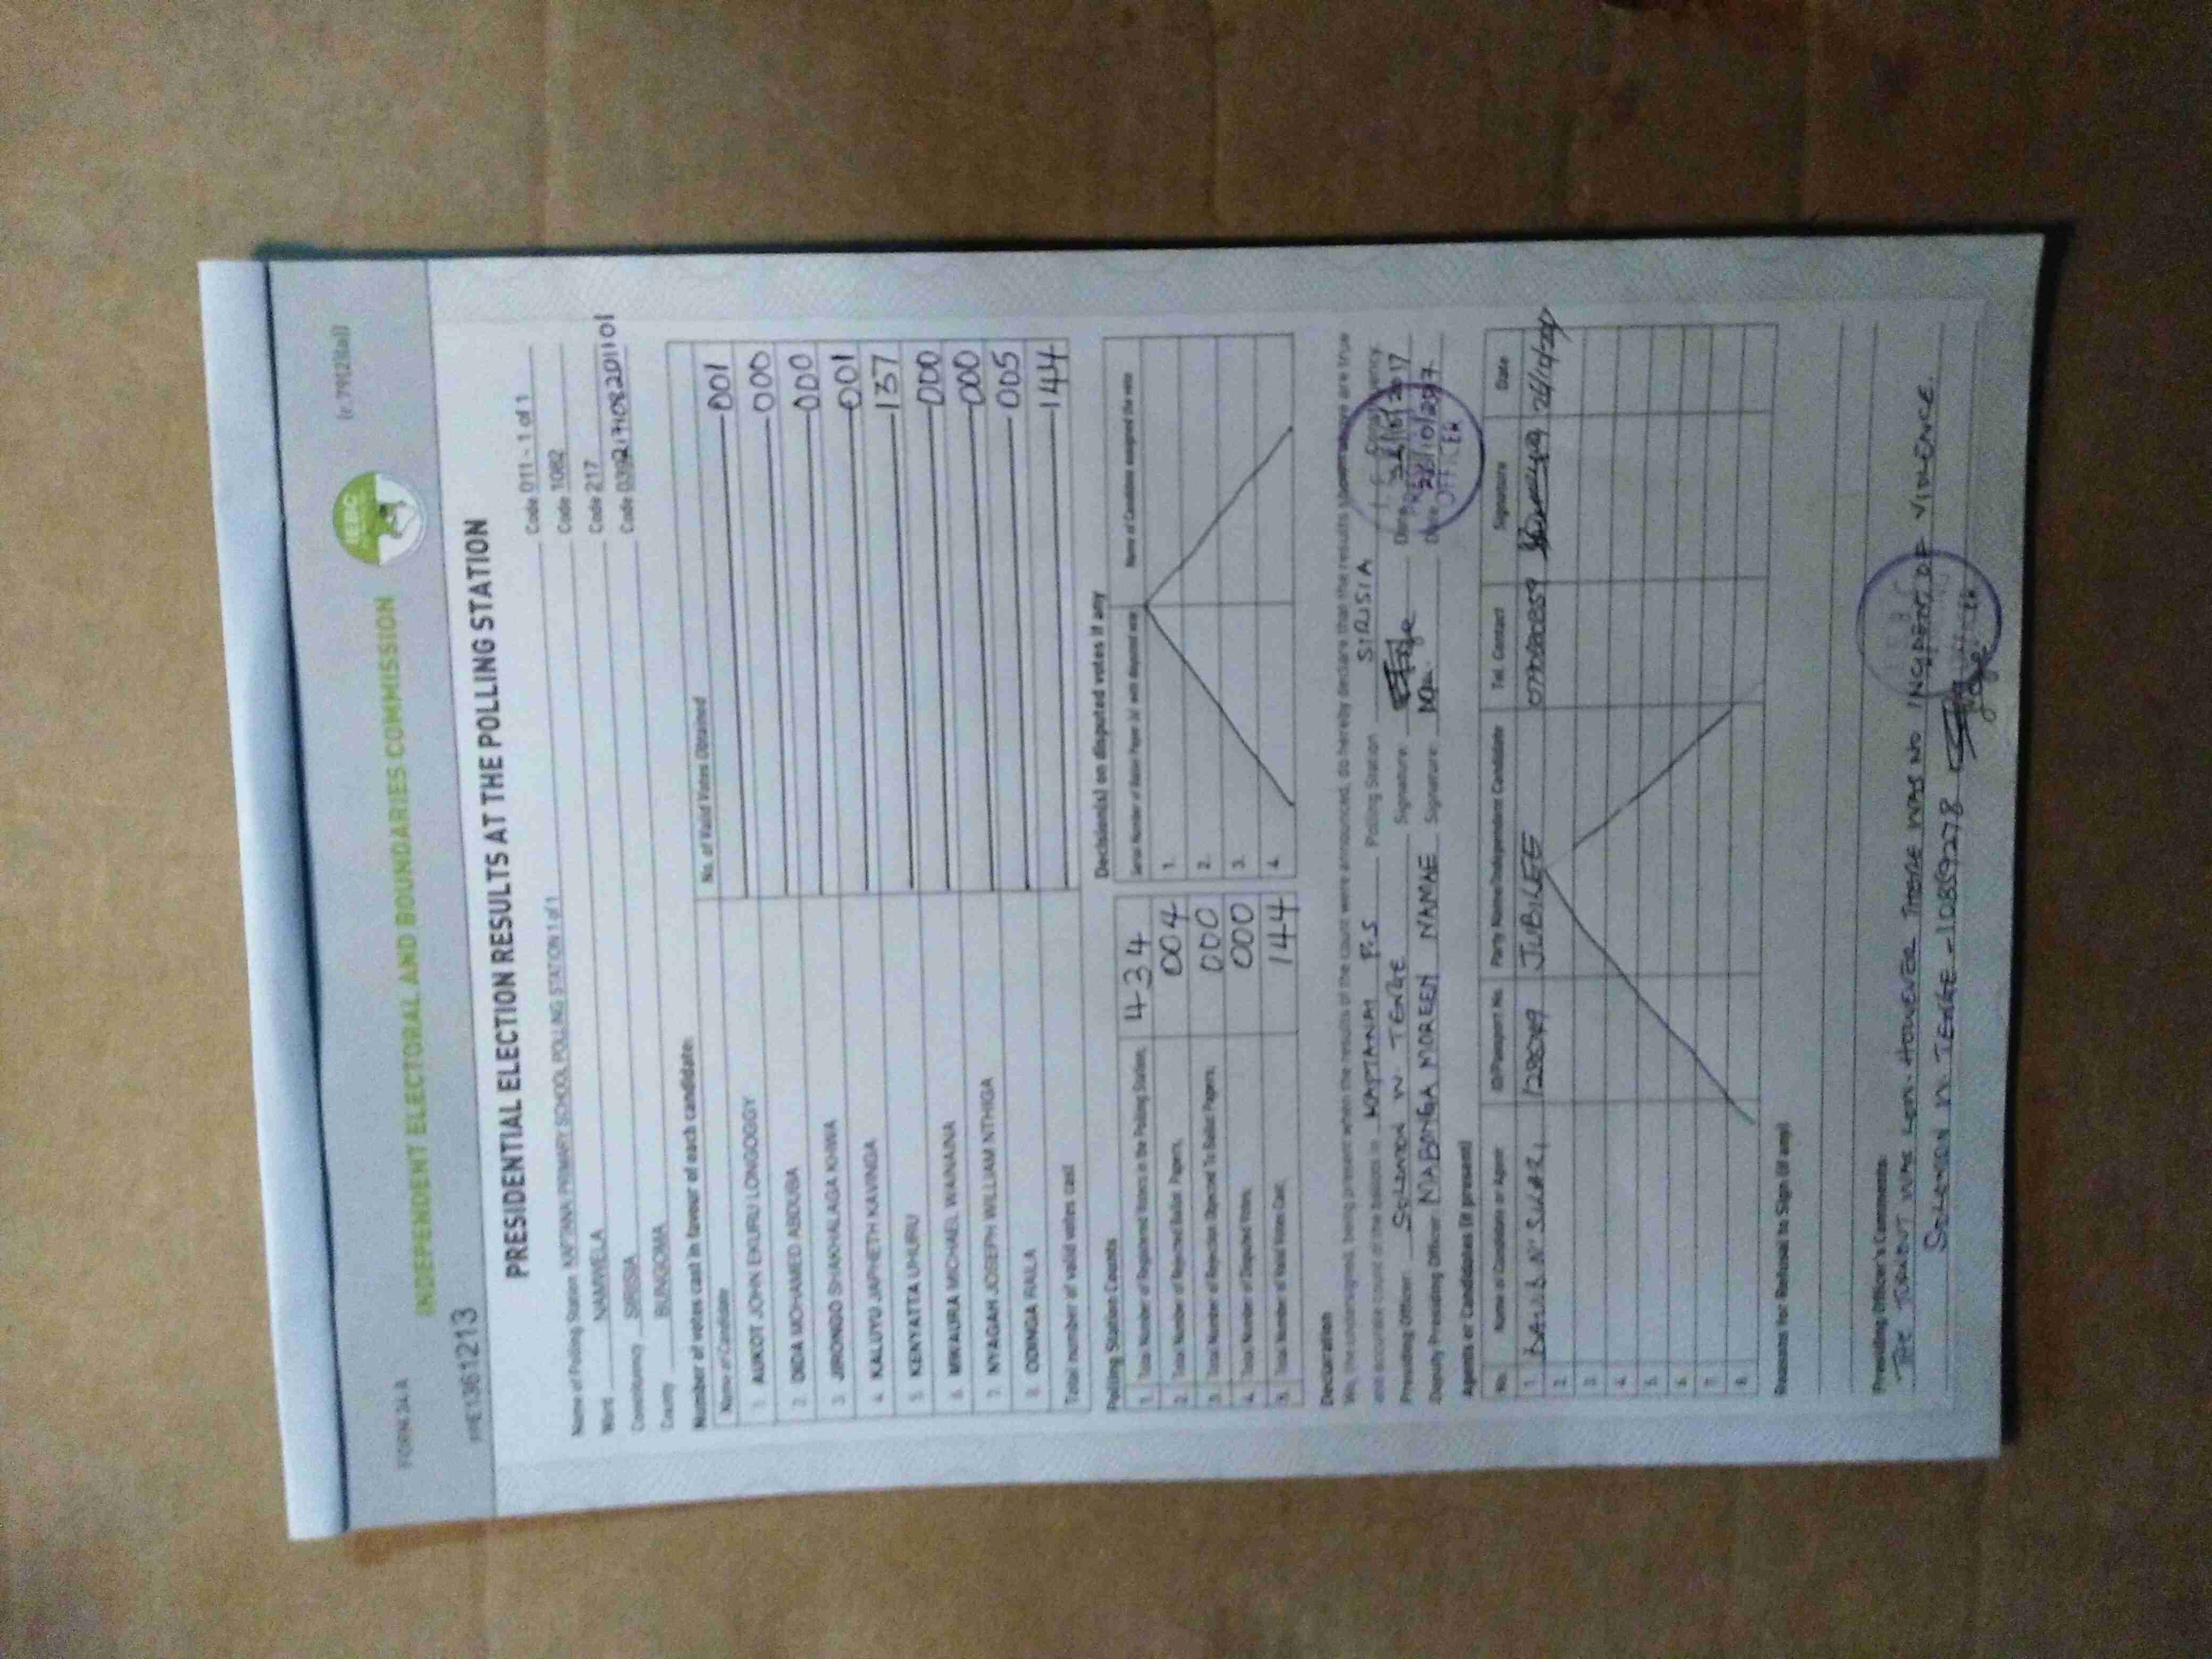 FORM 34 A
(r.79(2)(a))
INDEPENDENT ELECTORAL AND BOUNDARIES COMMISSION
IEBC
PRE1361213
PRESIDENTIAL ELECTION RESULTS AT THE POLLING STATION
Name of Polling Station KAPTANAI PRIMARY SCHOOL POLLING STATION 1 of 1 Code 011 - 1 of 1
Ward NAMWELA Code 1082
Constituency SIRISIA Code 217
County BUNGOMA Code 039217108201101
Number of votes cast in favour of each candidate:
Name of Candidate No. of Valid Votes Obtained
1. AUKOT JOHN EKURU LONGOGGY 001
2. DIDA MOHAMED ABDUBA 000
3. JIRONGO SHAKHALAGA KHWA 000
4. KALUYU JAPHETH KAVINGA 001
5. KENYATTA UHURU 137
6. MWAURA MICHAEL WAINAINA 000
7. NYAGAH JOSEPH WILLIAM NTHIGA 000
8. ODINGA RAILA 005
Total number of valid votes cast 144
Polling Station Counts
1. Total Number of Registered Voters in the Polling Station. 434
2. Total Number of Rejected Ballot Papers. 004
3. Total Number of Rejection Objected To Ballot Papers. 000
4. Total Number of Disputed Votes. 000
5. Total Number of Valid Votes Cast. 144
Decision(s) on disputed votes if any
Serial Number of Ballot Paper (s) with disputed vote Name of Candidate assigned the vote
1.
2.
3.
4.
Declaration
We, the undersigned, being present when the results of the count were announced, do hereby declare that the results shown above are true
and accurate count of the ballots in KAPTANAI P.S Polling Station SIRISIA Constituency.
Presiding Officer: SOLOMON W. TENGE Signature: Date: 26/10/2017
Deputy Presiding Officer: NABONGA MOREEN NAMAE Signature: Date: 26/10/2017
OFFICER
Agents or Candidates (if present)
No. Name of Candidate or Agent ID/Passport No. Party Name/Independent Candidate Tel. Contact Signature Date
1. JUBILEE
2.
3.
4.
5.
6.
7.
8.
Reasons for Refusal to Sign (if any)
Presiding Officer's Comments:
THE TURNOUT WAS LOW. HOWEVER THERE WAS NO INCIDENT OF VIOLENCE.
SOLOMON W. TENGE - 10859278